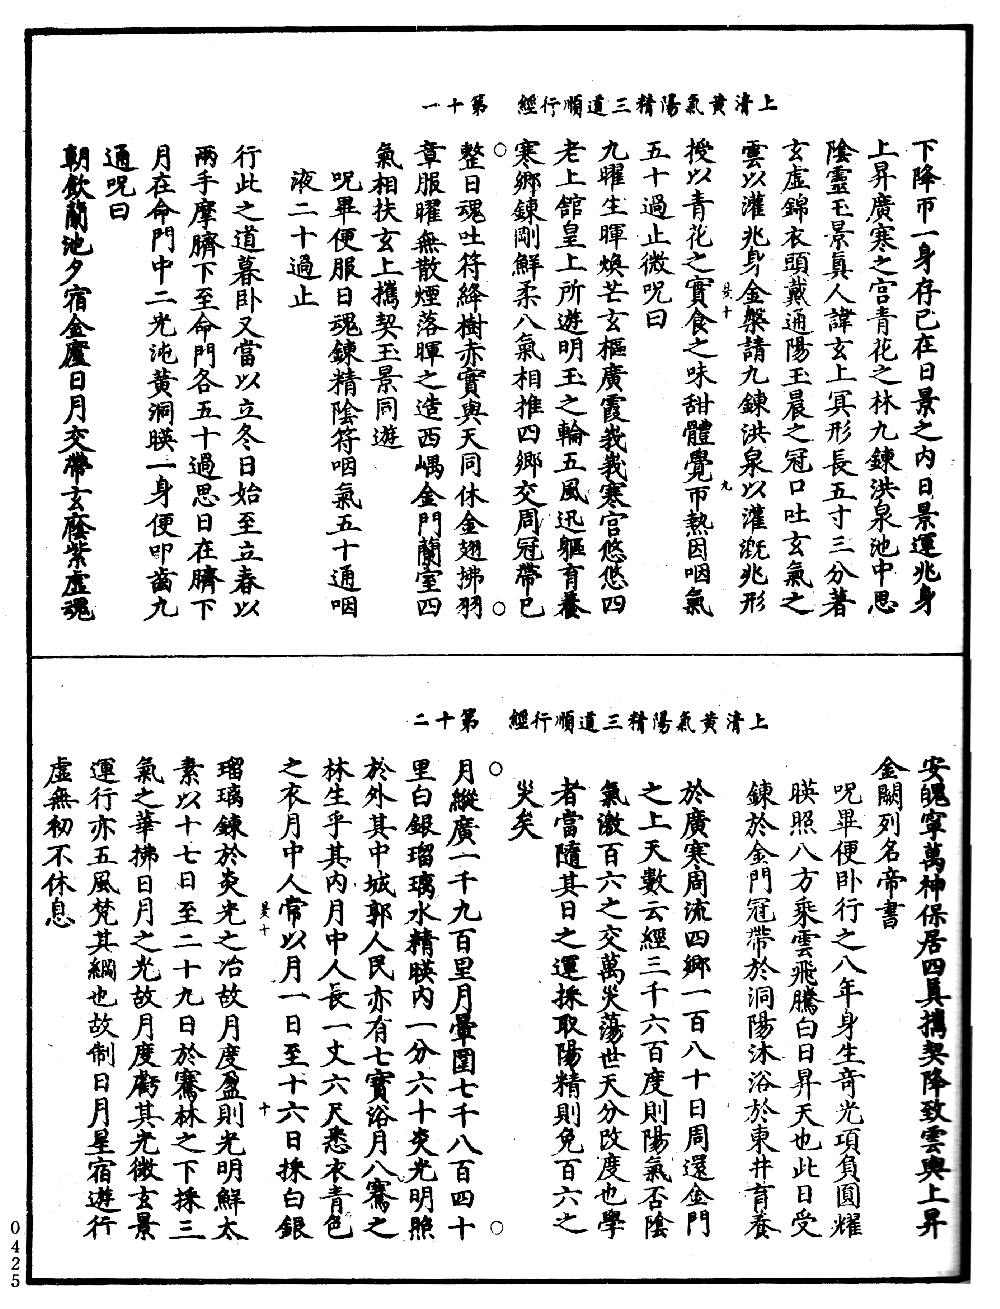 上清黃氣陽精三道順行經　第十一
下降帀一身存已在日景之內日景運兆身
上昇廣寒之宮青花之林九鍊洪泉池中思
陰靈玉景真人諱玄上冥形長五寸三分著
玄虛錦衣頭戴通陽玉晨之冠口吐玄氣之
雲以灌兆身金槃請九鍊洪泉以灌溉兆形
授以青花之實食之味甜體覺帀熱因咽氣
五十過止微呪曰
九曜生暉煥芒玄樞廣霞峩峩寒宮悠悠四
老上舘皇上所遊明玉之輪五風迅軀育養
寒鄉鍊剛鮮柔八氣相推四鄉交周冠帶巳
整日魂吐符絳樹赤實與天同休金翅拂羽
章服曜無散煙落暉之造西嵎金門蘭室四
氣相扶玄上攜契玉景同遊
呪畢便服日魂鍊精陰符咽氣五十通咽
液二十過止
行此之道暮卧又當以立冬日始至立春以
兩手摩臍下至命門各五十過思日在臍下
月在命門中二光沌黃洞暎一身便叩齒九
通呪曰
朝飲蘭池夕宿金廬日月交帶玄蔭紫虛魂
上清黃氣陽精三道順行經　第十二
安魄寧萬神保居四真攜契降致雲輿上昇
金闕列名帝書
呪畢便卧行之八年身生奇光項負圓耀
暎照八方乘雲飛騰白日昇天也此日受
鍊於金門冠帶於洞陽沐浴於東井育養
於廣寒周流四鄉一百八十日周還金門
之上天數云經三千六百度則陽氣否陰
氣激百六之交萬災蕩世天分改度也學
者當隨其日之運採取陽精則免百六之
災矣
月縱廣一千九百里月暈圍七千八百四十
里白銀瑠璃水精暎內一分六十炎光明照
於外其中城郭人民亦有七寶浴月八騫之
林生乎其內月中人長一丈六尺悉衣青色
之衣月中人常以月一日至十六日採白銀
瑠璃鍊於炎光之冶故月度盈則光明鮮太
素以十七日至二十九日於騫林之下採三
氣之華拂日月之光故月度虧其光微玄景
運行亦五風梵其綱也故制日月星宿遊行
虛無初不休息
0425